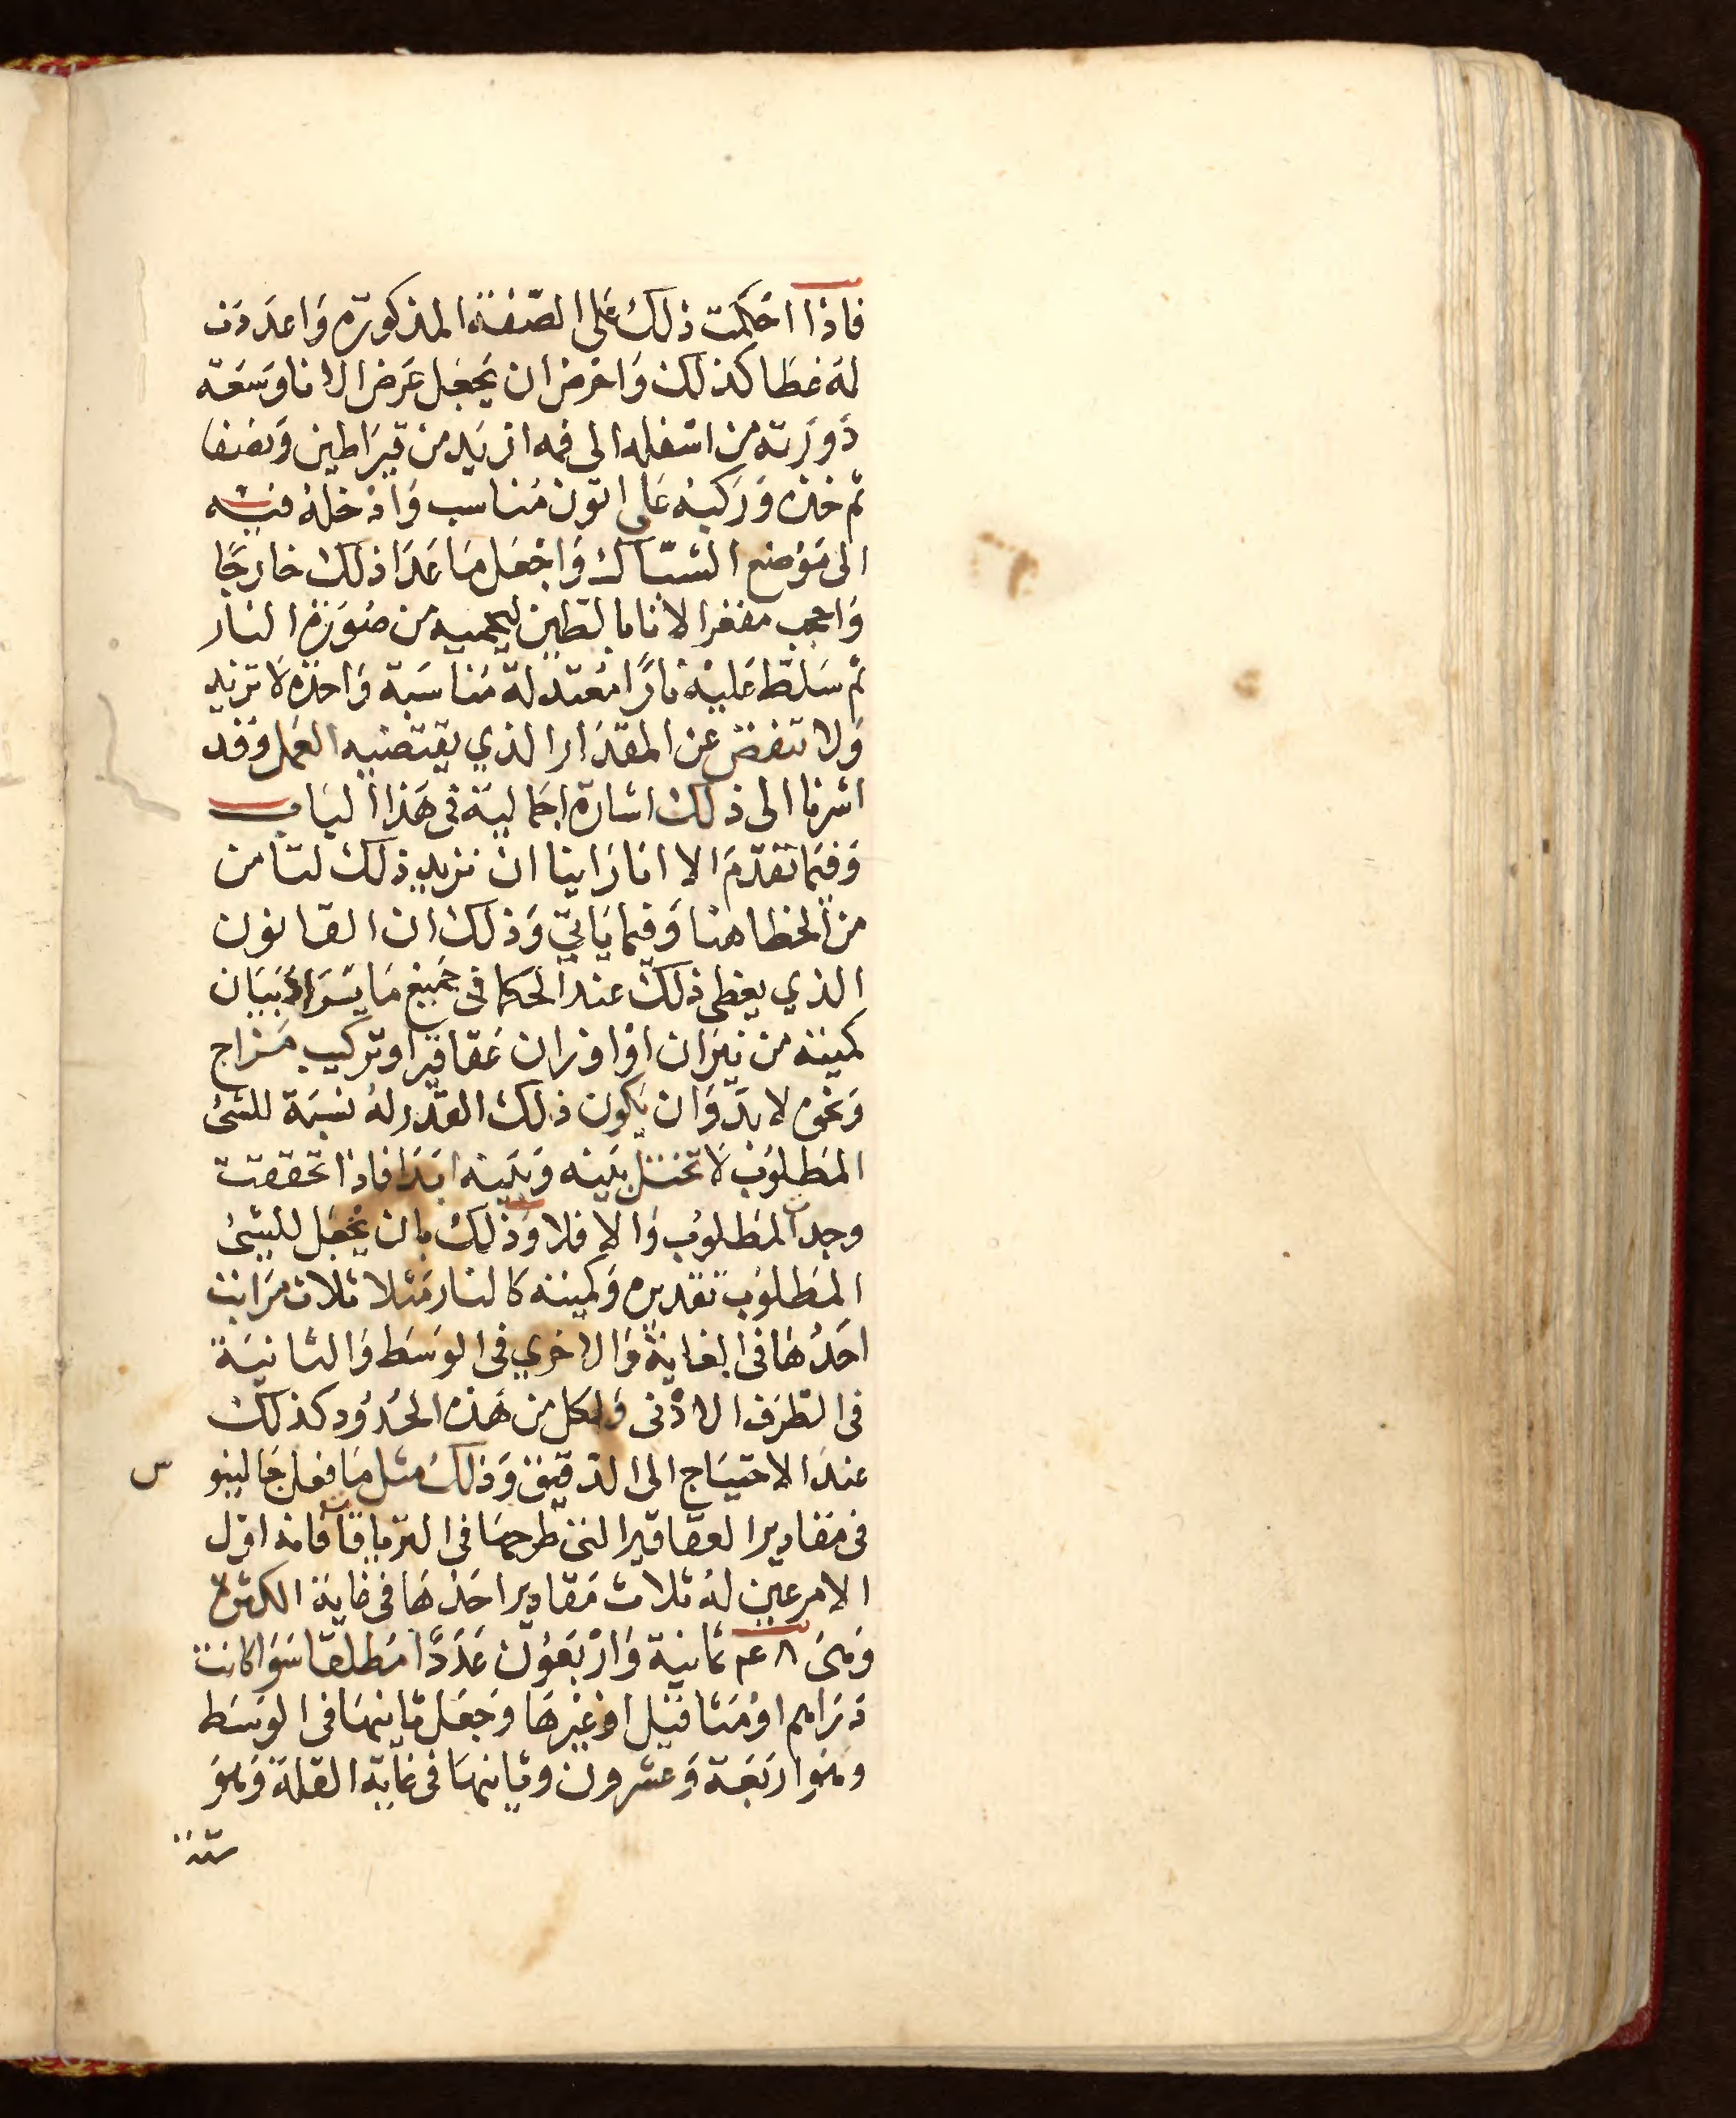 فاذا احكمت ذلك على الصفة المذكورة واعددت
له غطا كذلك واحرص ان يجعل عرض الانا وسعة
دورته من اسفله الى فمه ازيد من قيراطين ونصف
ثم خذه وركبه على اتون مناسب وادخله فيه
الى موضع الشباك واجعل ما عدا ذلك خارجا
واحجب مقعر الانا بالطين ليحميه من ضورة النار
ثم سلط عليه نارًا معتدلة مناسبة واحدة لا تزيد
ولا تنقص عن المقدار الذي يقتضيه العمل وقد
اشرنا الى ذلك اشارة اجمالية في هذا الباب
وفيما تقدم الا انا راينا ان نزيد ذلك لتامن
من الخطا هنا وفيما ياتي وذلك ان القانون
الذي يعطي ذلك عند الحكما في جميع ما يراد بيان
كميته من نيران او اوزان عقاقير او تركيب مزاج
ونحوه لا بد وان يكون ذلك القدر له نسبة للشئ
المطلوب لا تختل بينه وبينه ابدا فاذا تحققت
وجدت المطلوب والا فلا وذلك بان يجعل للشئ
المطلوب تقديره وكميته كالنار مثلا ثلاث مراتب
احدها في الغاية والاخري في الوسط والثانية
في الطرف الادنى ولكل من هذه الحدود كذلك
عند الاحتياج الى التدقيق وذلك مثل ما فعل جالينوس
في مقادير العقاقير التي طرحها في الترياقات فانه اول
الامر عين له ثلاث مقادير احدها في غاية الكثرة
وهى ٤٨ ثمانية واربعون عددًا مطلقا سوا كانت
دراهم او مثاقيل او غيرها وجعل ثانيها في الوسط
وهو اربعة وعشرون وثانيها في غاية القلة وهو
ستة